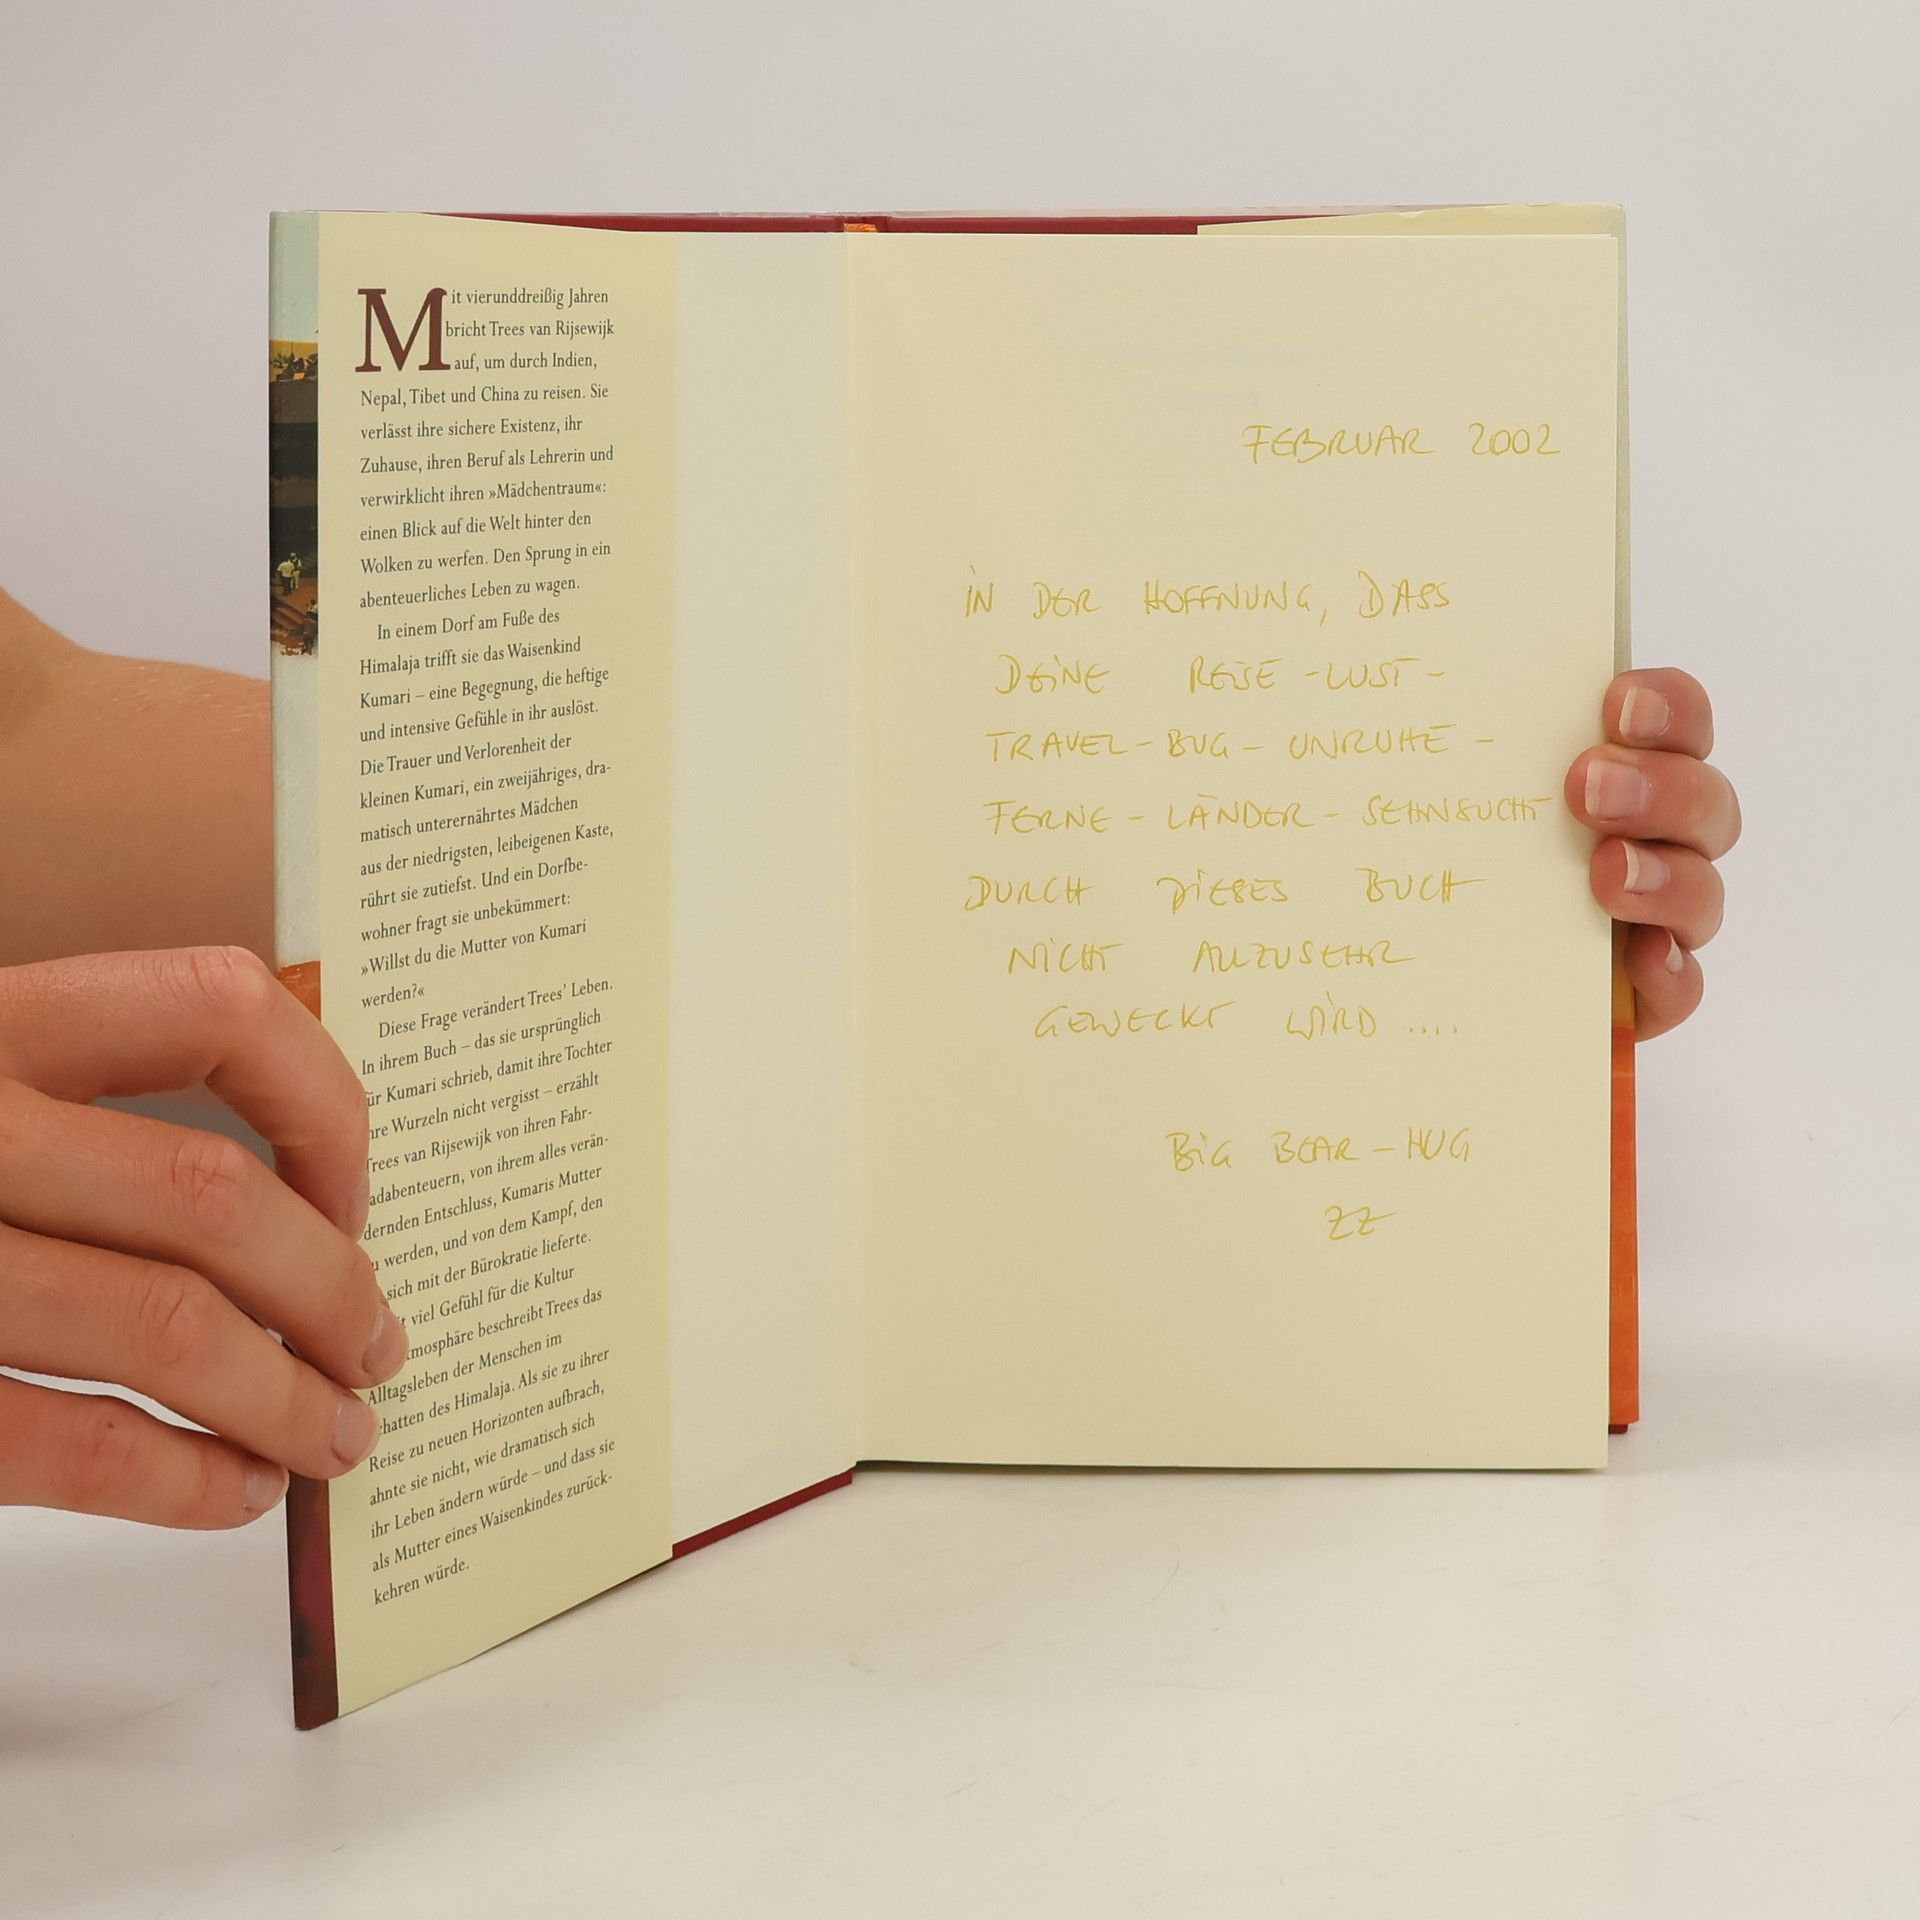 Mit vierunddreißig Jahren
bricht Trees van Rijsewijk
auf, um durch Indien,
Nepal, Tibet und China zu reisen. Sie
verlässt ihre sichere Existenz, ihr
Zuhause, ihren Beruf als Lehrerin und
verwirklicht ihren »Mädchentraum«:
einen Blick auf die Welt hinter den
Wolken zu werfen. Den Sprung in ein
abenteuerliches Leben zu wagen.
In einem Dorf am Fuße des
Himalaja trifft sie das Waisenkind
Kumari – eine Begegnung, die heftige
und intensive Gefühle in ihr auslöst.
Die Trauer und Verlorenheit der
kleinen Kumari, ein zweijähriges, dra-
matisch unterernährtes Mädchen
aus der niedrigsten, leibeigenen Kaste,
rührt sie zutiefst. Und ein Dorfbe-
wohner fragt sie unbekümmert:
»Willst du die Mutter von Kumari
werden?«
Diese Frage verändert Trees' Leben.
In ihrem Buch – das sie ursprünglich
für Kumari schrieb, damit ihre Tochter
Wurzeln nicht vergisst – erzählt
Trees van Rijsewijk von ihren Fahr-
adabenteuern, von ihrem alles verän-
dernden Entschluss, Kumaris Mutter
werden, und von dem Kampf, den
sich mit der Bürokratie lieferte.
viel Gefühl für die Kultur
beschreibt Trees das
Alltagsleben der Menschen im
hatten des Himalaja. Als sie zu ihrer
Reise zu neuen Horizonten aufbrach,
ahnte sie nicht, wie dramatisch sich
ihr Leben ändern würde – und dass sie
als Mutter eines Waisenkindes zurück-
kehren würde.
FEBRUAR 2002
IN DER HOFFNUNG, DASS
DEINE REISE-LUST-
TRAVEL-BUG-UNRUHE-
FERNE-LÄNDER-SEHNSUCHT
DURCH DIESES BUCH
NICHT ALLZUSEHR
GEWECKT WIRD ....
BIG BEAR-HUG
ZZ